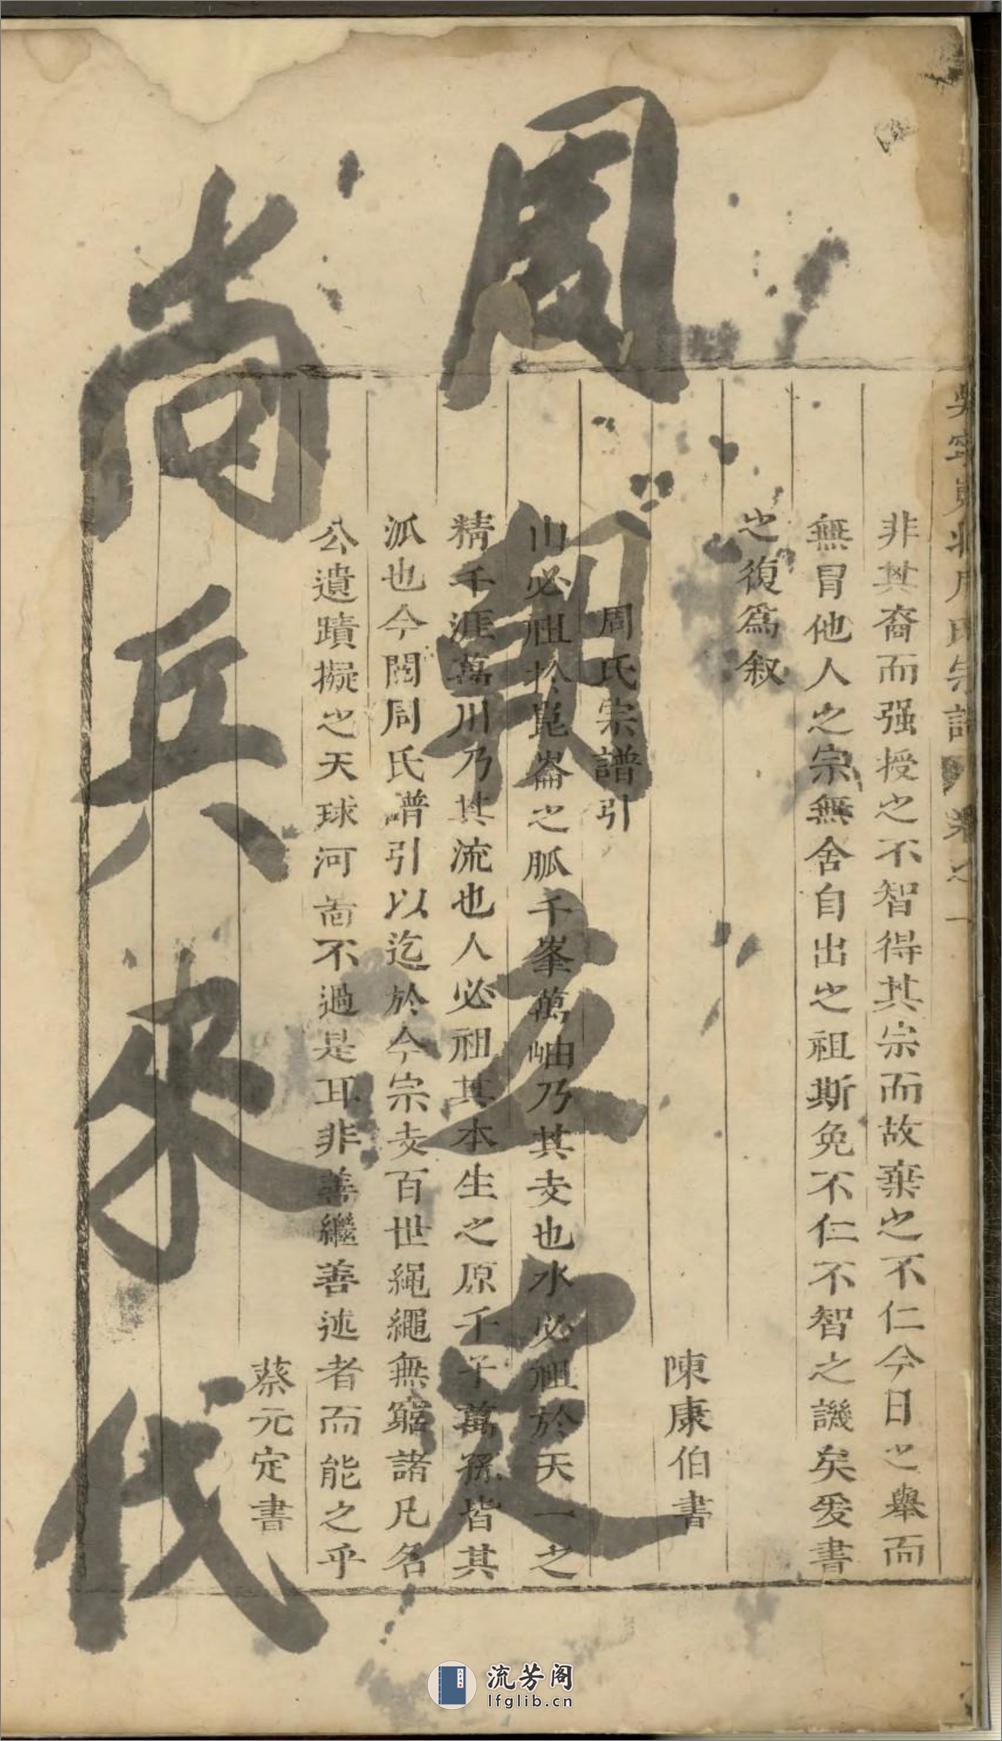 非其裔而强授之不智得其宗而故棄之不仁今日之舉而
無冒他人之宗無舍自出之祖斯免不仁不智之譏矣爰書
之復爲叙
陳康伯書
周氏宗譜引
山必祖於崑崙之脈千峯萬岫乃其支也水必祖於天一之
精千涯萬川乃其流也人必祖其本生之原千子萬孫皆其
派也今閱周氏譜引以迄於今宗支百世繩繩無窮諸凡名
公遺蹟擬之天球河啚不過是耳非善繼善述者而能之乎
蔡元定書
周朝
尚兵來代
流芳阁
lfglib.cn